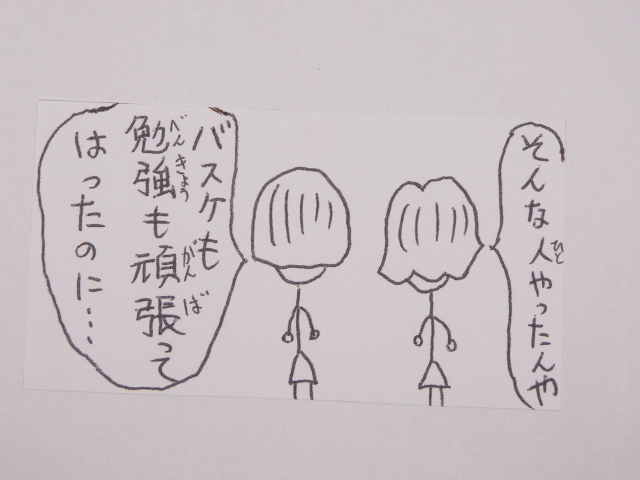 そんな人やったんや
バスケも
勉強も頑張って
はったのに…